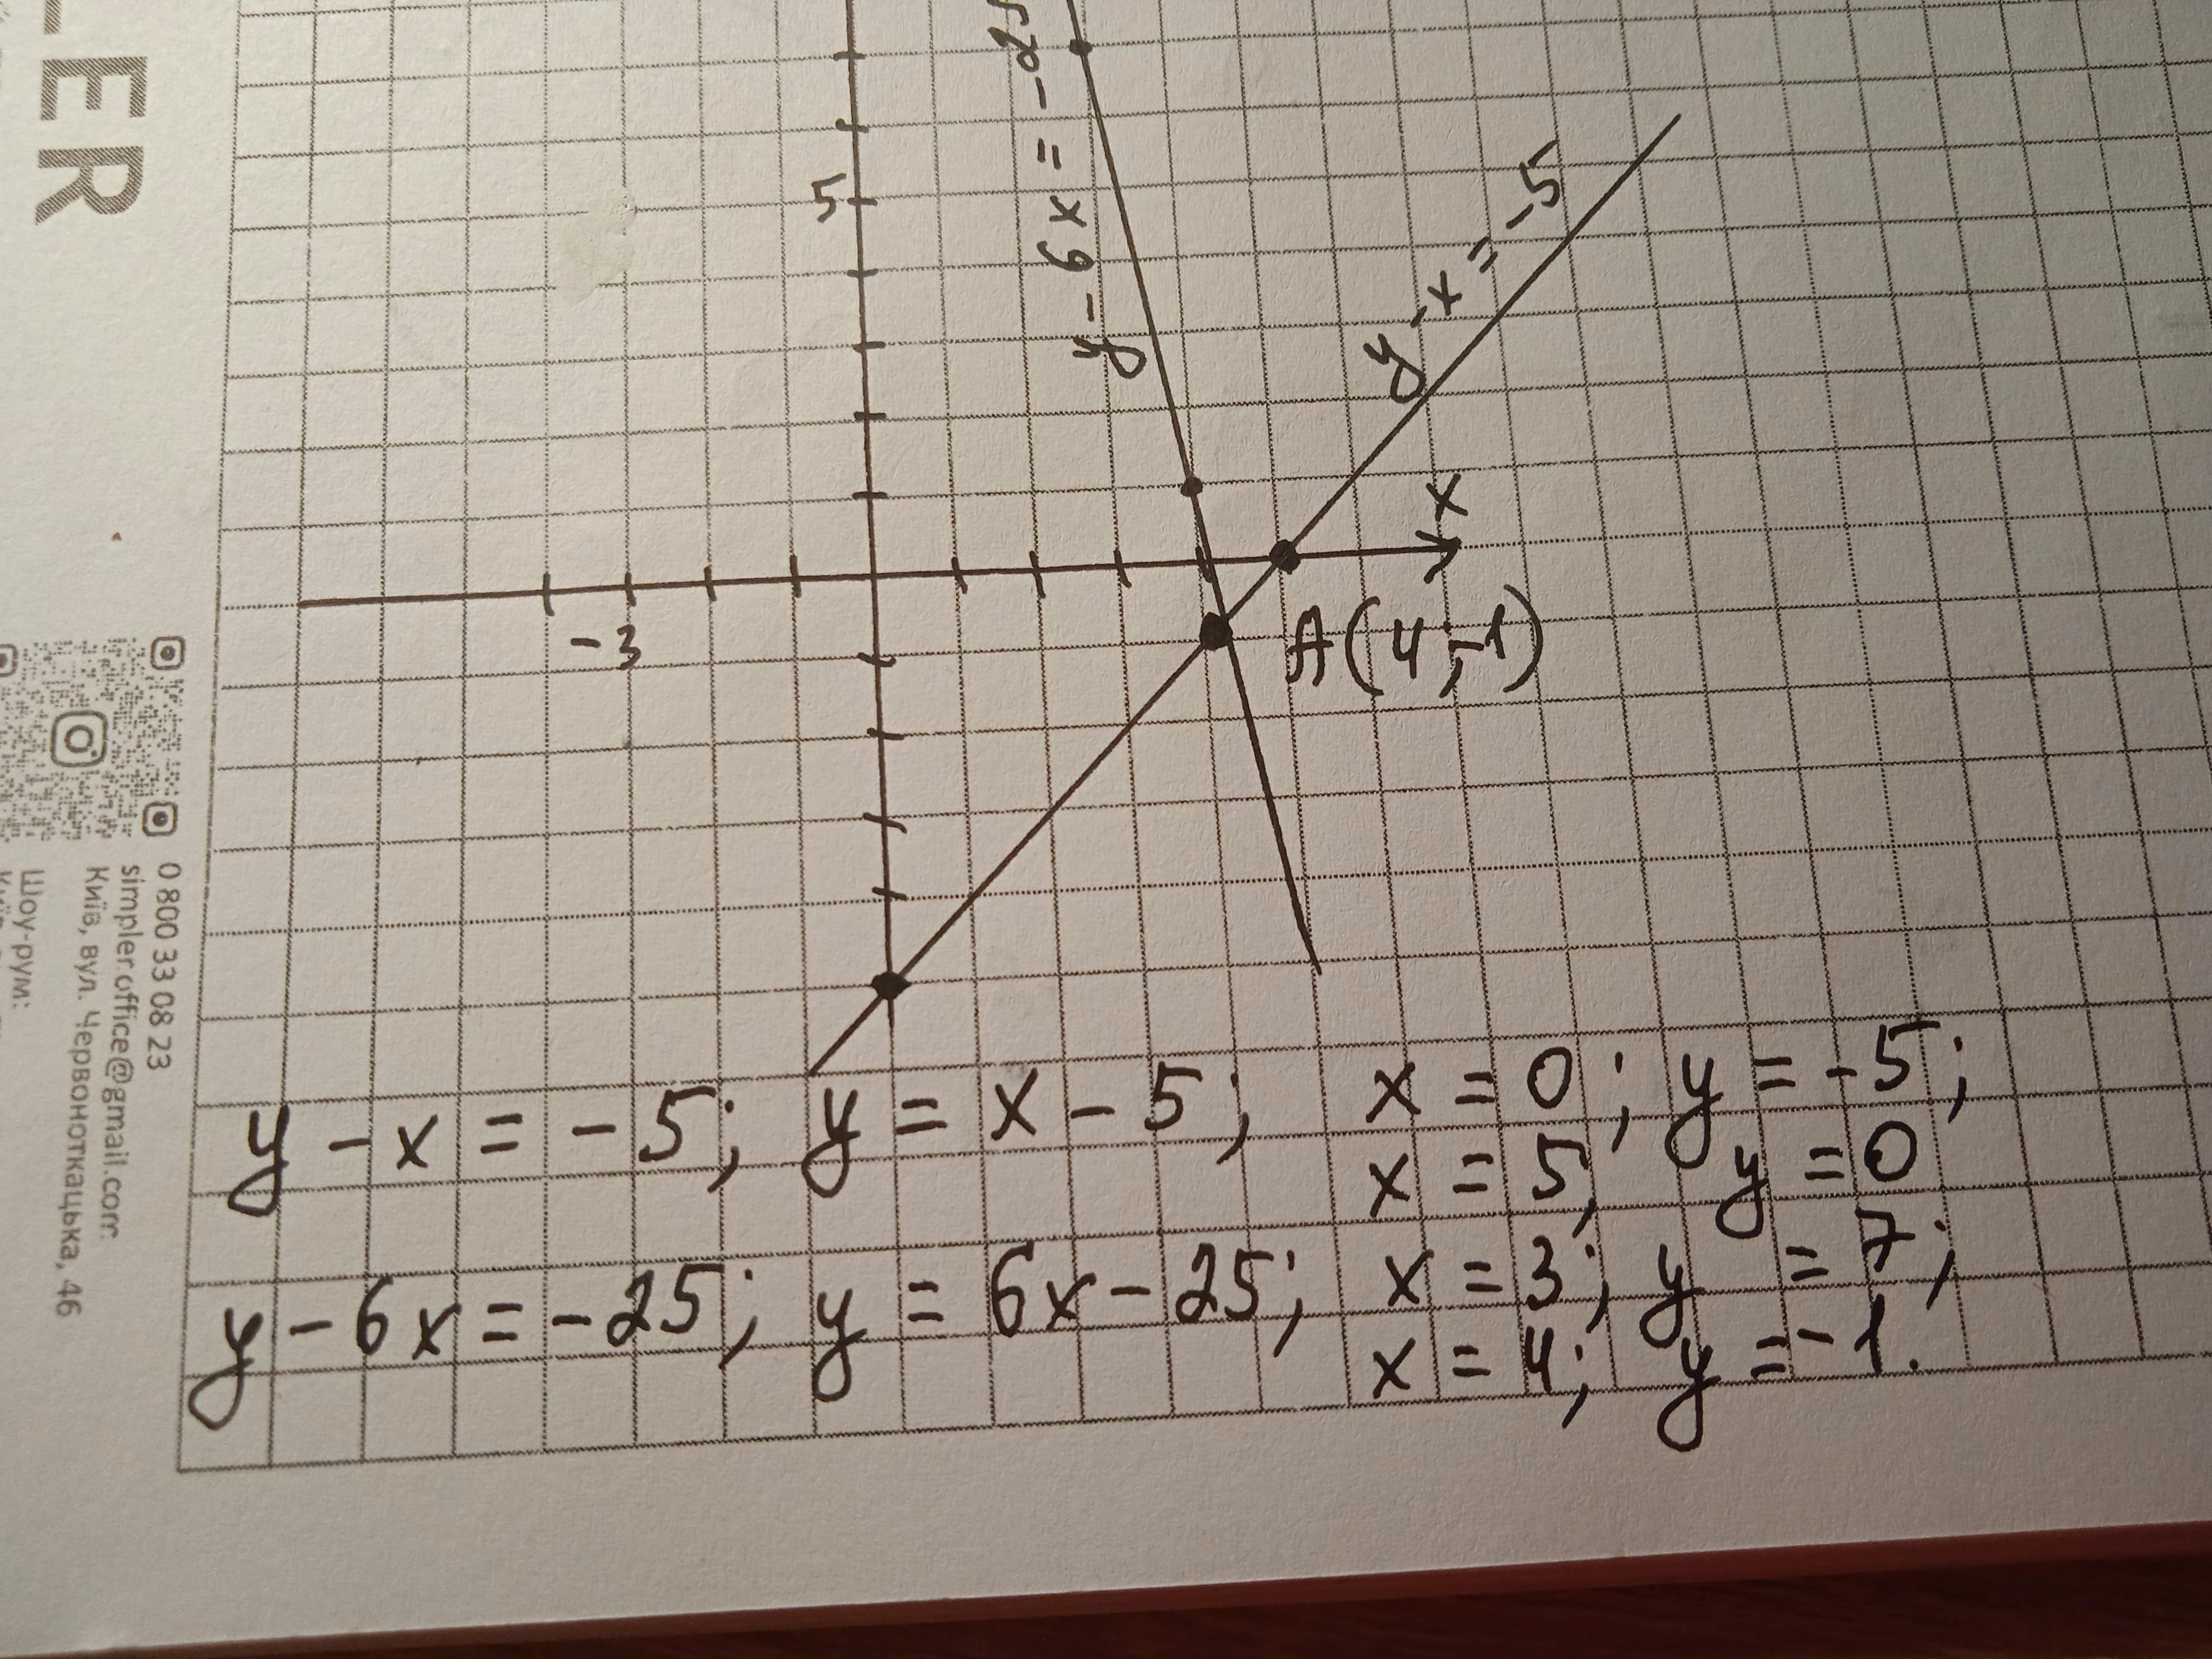 LER
y - 6x = -25
5
y - x = -5
x
-3
A(4;-1)
0 800 33 08 23
simpler.office@gmail.com
Київ, вул. Червоноткацька, 46
Шоу-рум:
y - x = -5; y = x - 5; x = 0; y = -5;
x = 5; y = 0
y - 6x = -25; y = 6x - 25; x = 3; y = 7;
x = 4; y = -1.